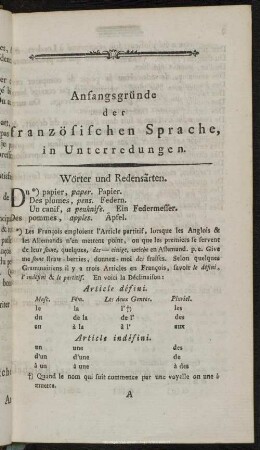 Anfangsgründe
der
französischen Sprache,
in Unterredungen.
Wörter und Redensarten.
Du *) papier, paper. Papier.
Des plumes, pens. Federn.
Un canif, a penknife. Ein Federmesser.
Des pommes, apples. Apfel.
*) Les François emploient l'Article partitif, lorsque les Anglois &
les Allemands n'en mettent point, ou que les premiers se servent
de leur some, quelques, einige, welche en Allemand. p. e. Give
me some straw-berries, donnez-moi des fraises. Selon quelques
Grammairiens il y a trois Articles en François, savoir le défini,
l'indéfini & le partitif. En voici la Déclinaison:
Article défini.
Masc. Fém. Les deux Genres. Pluriel.
le la l'†) les
du de la de l' des
au à la à l' aux
Article indéfini.
un une des
d'un d'une de
à un à une à des
†) Quand le nom qui suit commence par une voyelle ou une h
muette.
A